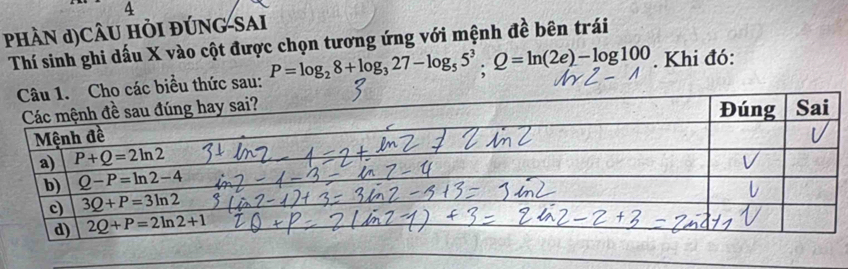 4
PHẦN d)CÂU HỎI ĐÚNG-SAI
Thí sinh ghi dấu X vào cột được chọn tương ứng với mệnh đề bên trái
Câu 1. Cho các biểu thức sau: P=log₂8+log₃27−log₅5³; Q=ln(2e)−log100. Khi đó:
3 ln2-1
Các mệnh đề sau đúng hay sai?
Mệnh đề Đúng Sai
a) P+Q=2ln2 3+ln2-1=2+ln2≠2ln2 V
b) Q−P=ln2−4 ln2-1-3=ln2-4 V
c) 3Q+P=3ln2 3(ln2-1)+3=3ln2-3+3=3ln2 V
d) 2Q+P=2ln2+1 2Q+P=2(ln2-1)+3=2ln2-2+3=2ln2+1 V